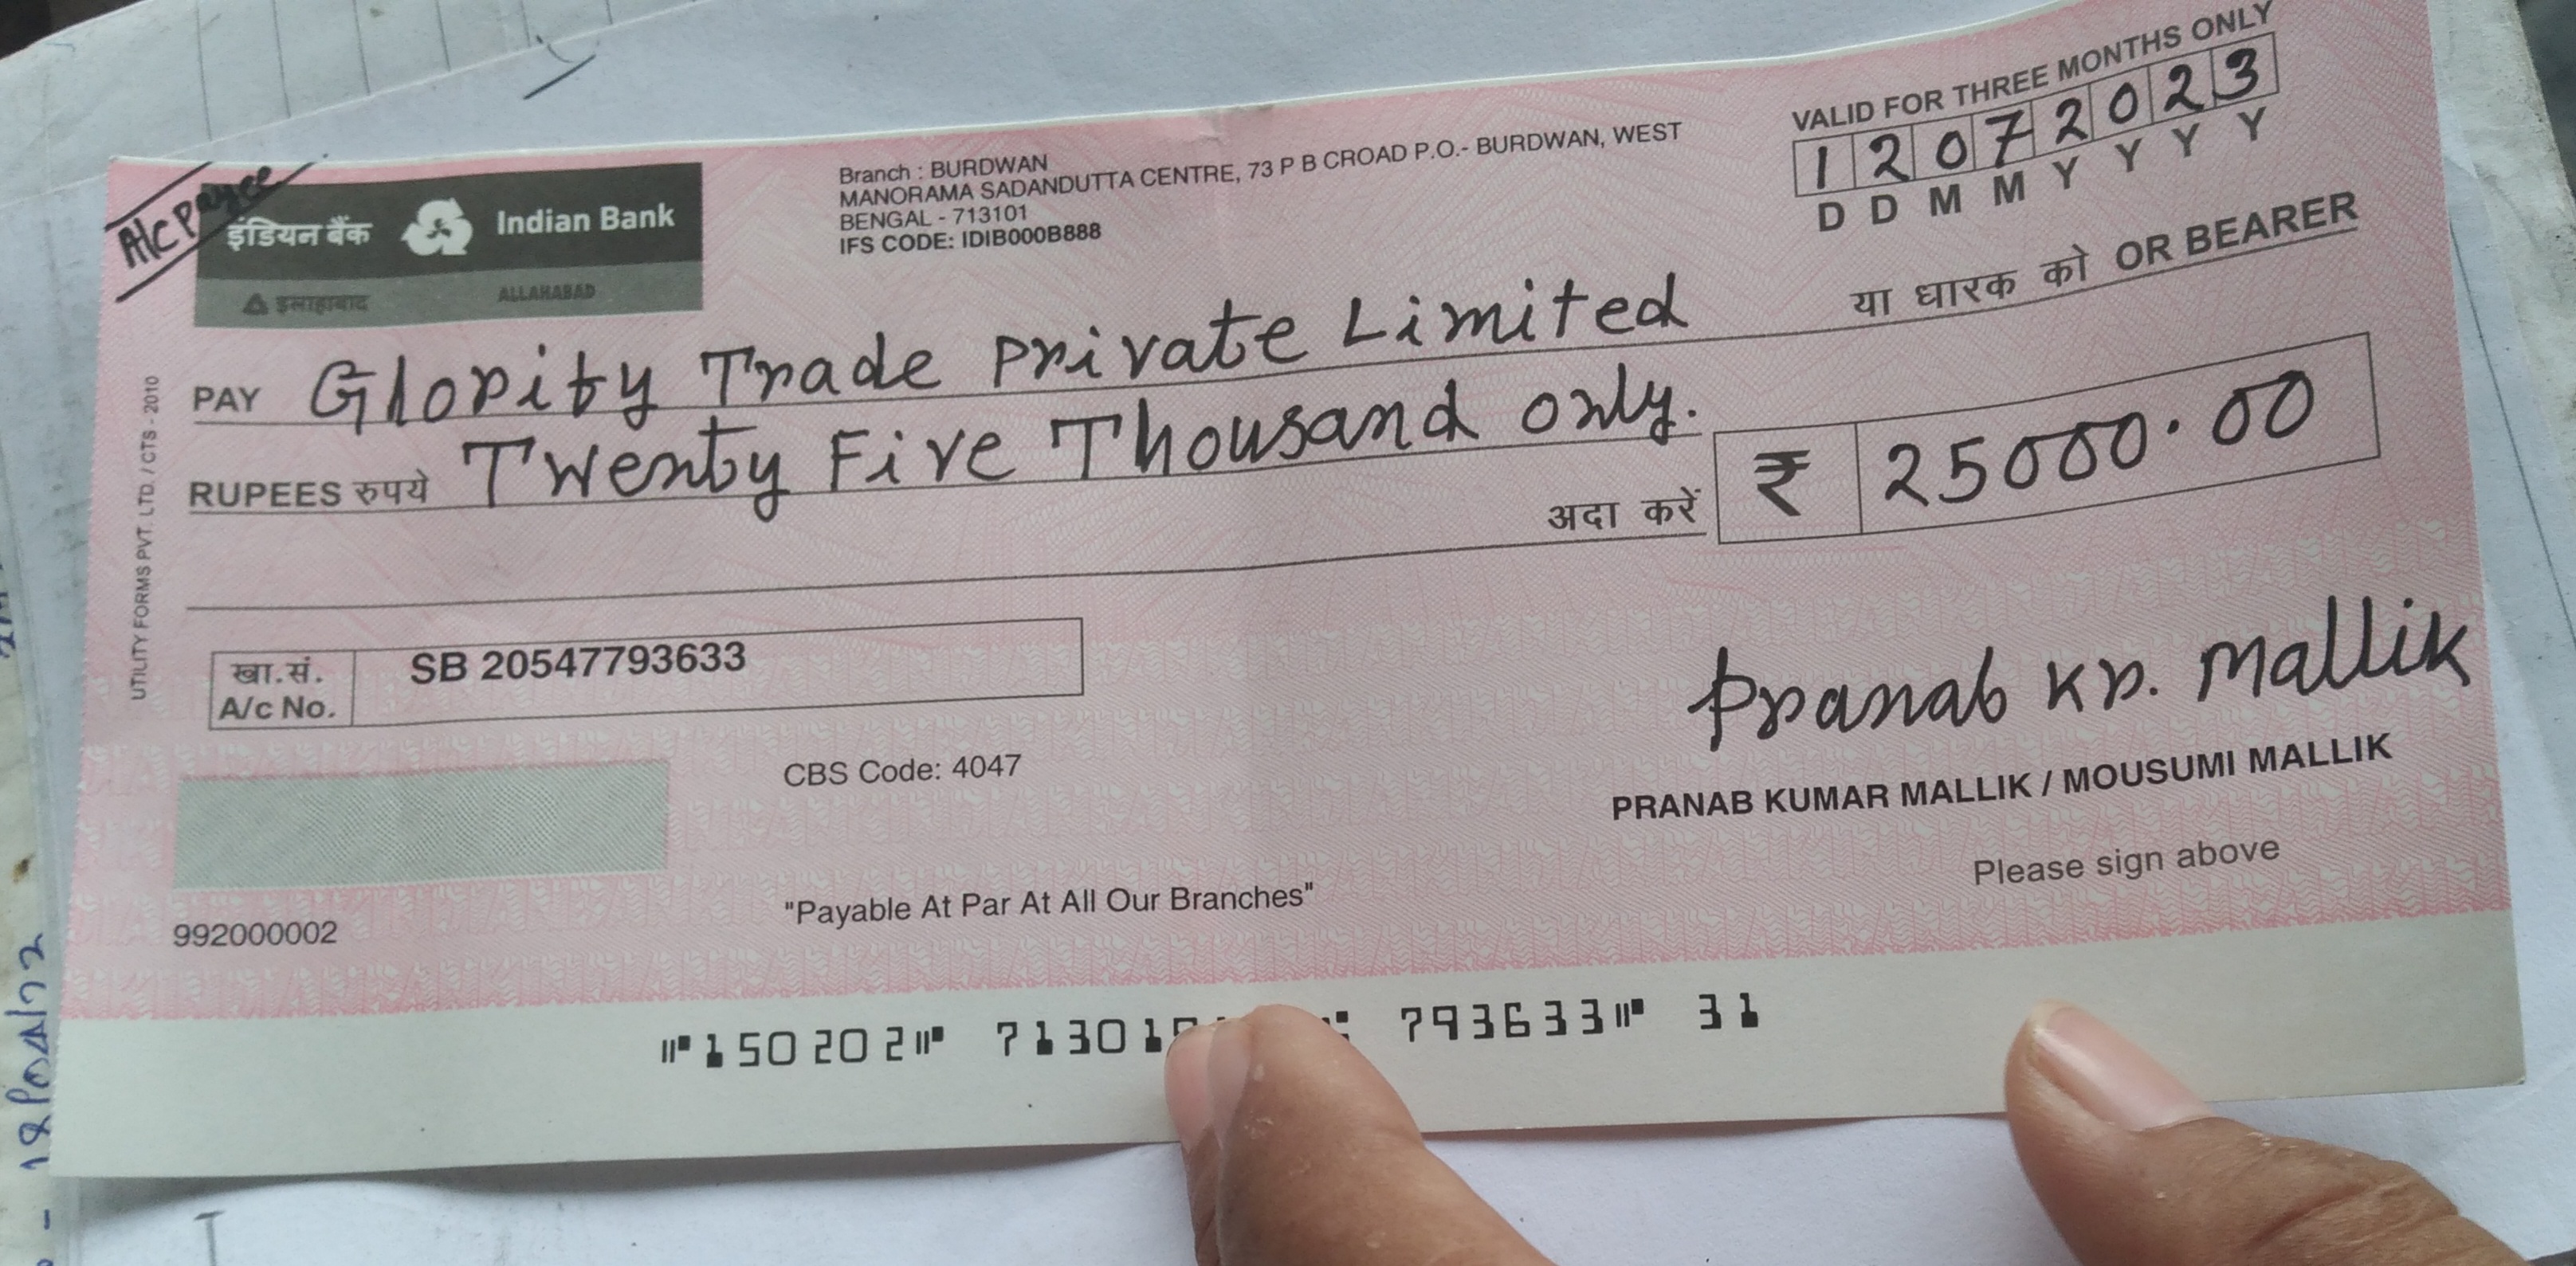 A/c payee
इंडियन बैंक Indian Bank
इलाहाबाद ALLAHABAD
Branch : BURDWAN
MANORAMA SADANDUTTA CENTRE, 73 P B CROAD P.O.- BURDWAN, WEST
BENGAL - 713101
IFS CODE: IDIB000B888
VALID FOR THREE MONTHS ONLY
12072023
D D M M Y Y Y Y
PAY Glority Trade Private Limited या धारक को OR BEARER
RUPEES रुपये Twenty Five Thousand only.
अदा करें ₹ 25000.00
UTILITY FORMS PVT. LTD. / CTS - 2010
खा.सं. SB 20547793633
A/c No.
Pranab Kr. Mallik
CBS Code: 4047
PRANAB KUMAR MALLIK / MOUSUMI MALLIK
Please sign above
"Payable At Par At All Our Branches"
992000002
⑈150202⑈ 71301 793633⑈ 31